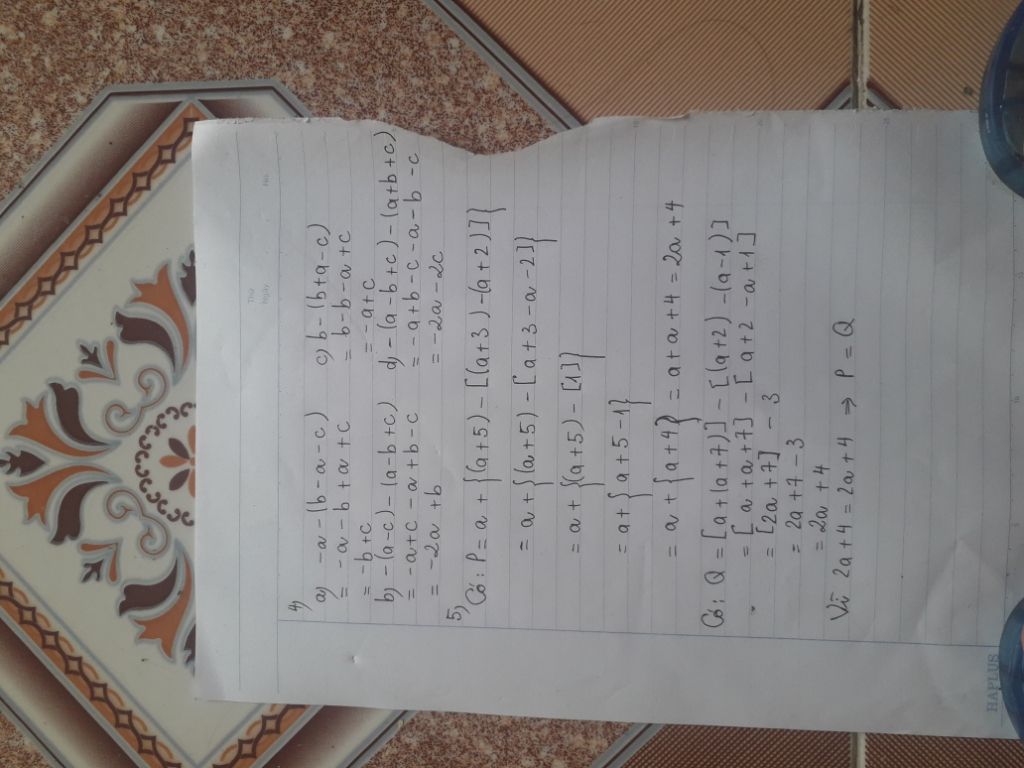 Thứ
Ngày
No.
4)
a) -a-(b-a-c)
= -a-b+a+c
= -b+c
b) -(a-c)-(a-b+c)
= -a+c-a+b-c
= -2a+b
c) b-(b+a-c)
= b-b-a+c
= -a+c
d) -(a-b+c)-(a+b+c)
= -a+b-c-a-b-c
= -2a-2c
5)
Có: P = a + {(a+5) - [(a+3)-(a+2)]}
= a + {(a+5) - [a+3-a-2]}
= a + {(a+5) - [1]}
= a + {a+5-1}
= a + {a+4} = a+a+4 = 2a+4
Có: Q = [a+(a+7)] - [(a+2)-(a-1)]
= [a+a+7] - [a+2-a+1]
= [2a+7] - 3
= 2a+7-3
= 2a+4
Vì 2a+4 = 2a+4 => P = Q
HAPLUS